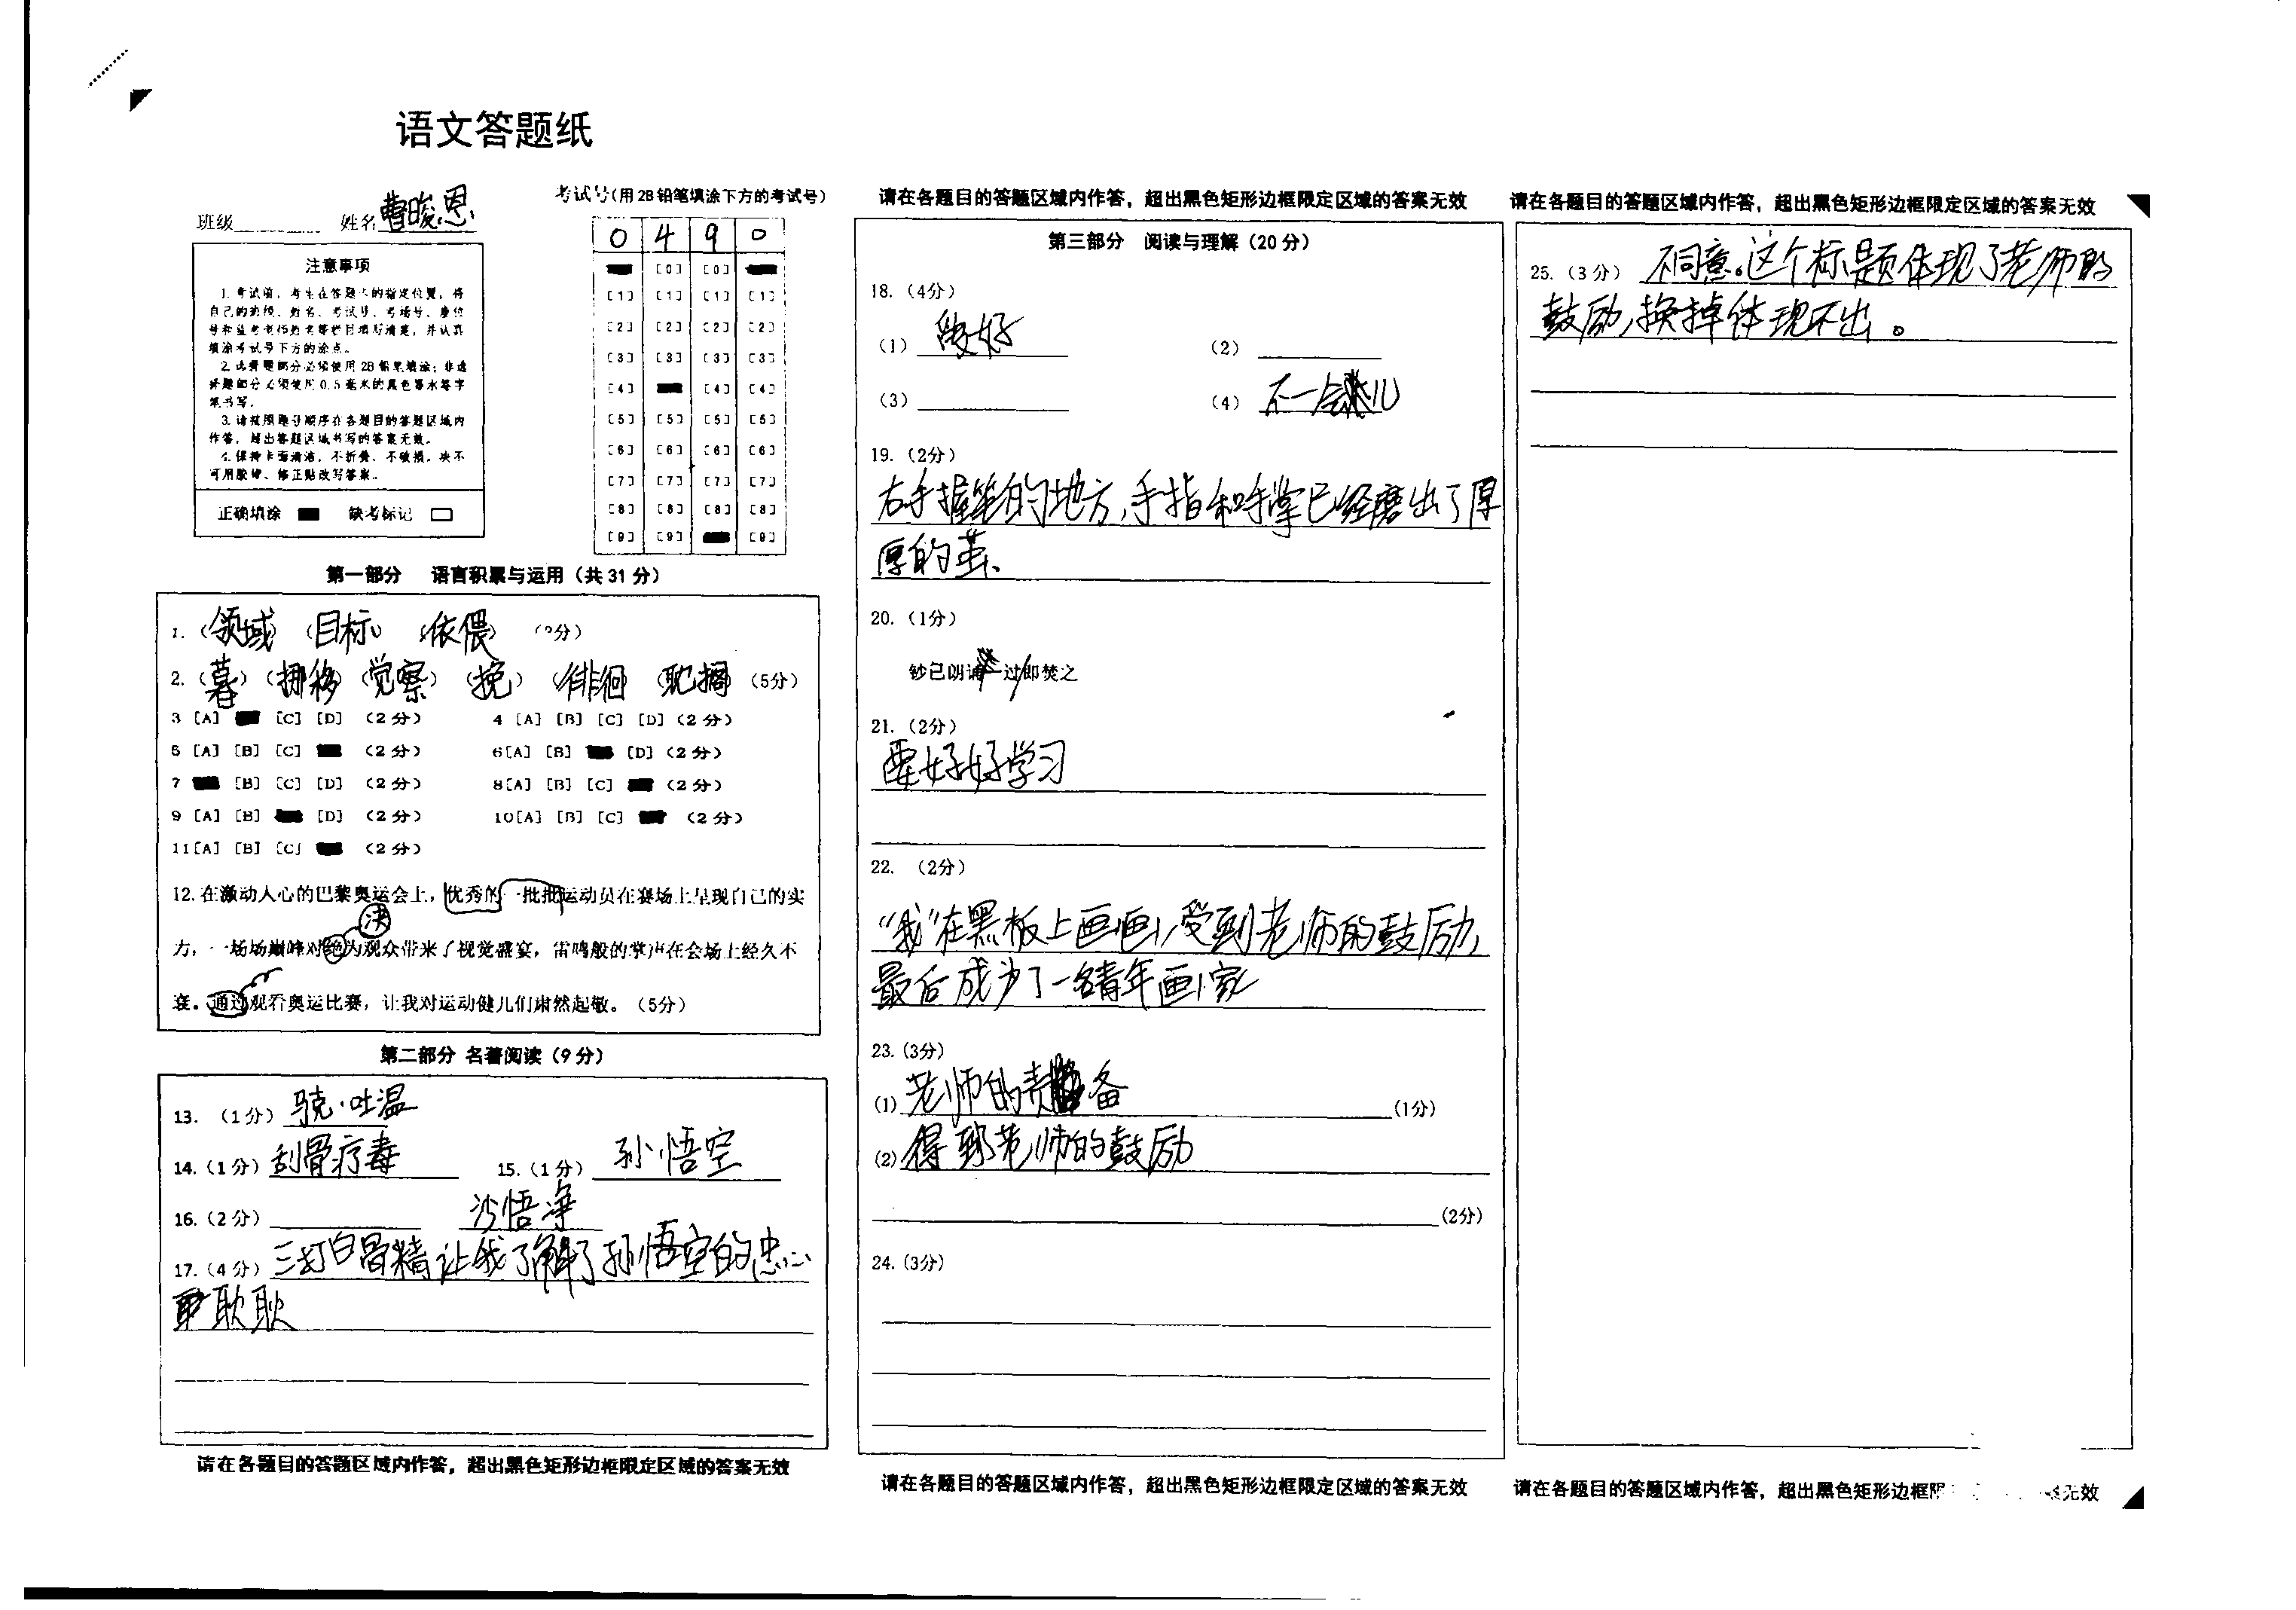 语文答题纸
班级 姓名 曹晙恩
考试号(用2B铅笔填涂下方的考试号)
0 4 9 0
[0] [0]
[1] [1] [1] [1]
[2] [2] [2] [2]
[3] [3] [3] [3]
[4] [4] [4]
[5] [5] [5] [5]
[6] [6] [6] [6]
[7] [7] [7] [7]
[8] [8] [8] [8]
[9] [9] [9]
注意事项
1. 考试前，考生在答题卡的指定位置，将
自己的班级、姓名、考试号、考场号、座位
号和监考老师姓名等栏目填写清楚，并认真
填涂考试号下方的涂点。
2. 选择题部分必须使用2B铅笔填涂；非选
择题部分必须使用0.5毫米的黑色墨水签字
笔书写。
3. 请按照题号顺序在各题目的答题区域内
作答，超出答题区域书写的答案无效。
4. 保持卡面清洁，不折叠、不破损，决不
可用胶带、修正贴改写答案。
正确填涂 缺考标记
第一部分 语言积累与运用（共31分）
1.（领域）（目标）（依偎）
2.（暮）（挪移）（觉察）（挽）（徘徊）（耽搁）（5分）
3 [A] [C] [D] （2分） 4 [A] [B] [C] [D]（2分）
5 [A] [B] [C] （2分） 6[A] [B] [D]（2分）
7 [B] [C] [D] （2分） 8[A] [B] [C] （2分）
9 [A] [B] [D] （2分） 10[A] [B] [C] （2分）
11[A] [B] [C] （2分）
12. 在激动人心的巴黎奥运会上，优秀的一批批运动员在赛场上呈现自己的实
决
力，一场场巅峰对绝为观众带来了视觉盛宴，雷鸣般的掌声在会场上经久不
衰。通过观看奥运比赛，让我对运动健儿们肃然起敬。（5分）
第二部分 名著阅读（9分）
13. （1分）骁·吐温
14.（1分）刮骨疗毒 15.（1分）孙悟空
16.（2分） 沙悟净
17.（4分）三打白骨精让我了解了孙悟空的忠心
耿耿
请在各题目的答题区域内作答，超出黑色矩形边框限定区域的答案无效
请在各题目的答题区域内作答，超出黑色矩形边框限定区域的答案无效
第三部分 阅读与理解（20分）
18.（4分）
（1）做好 （2）
（3） （4）不一会儿
19.（2分）
右手握笔的地方，手指和手掌已经磨出了厚
厚的茧、
20.（1分）
钞已朗诵一过即焚之
21.（2分）
要好好学习
22. （2分）
“我”在黑板上画画，受到老师的鼓励，
最后成为了一名青年画家
23.(3分)
(1) 老师的责备 (1分)
(2) 得到老师的鼓励
(2分)
24.(3分)
请在各题目的答题区域内作答，超出黑色矩形边框限定区域的答案无效
请在各题目的答题区域内作答，超出黑色矩形边框限定区域的答案无效
25.（3分）不同意。这个标题体现了老师的
鼓励，换掉体现不出。
请在各题目的答题区域内作答，超出黑色矩形边框 无效